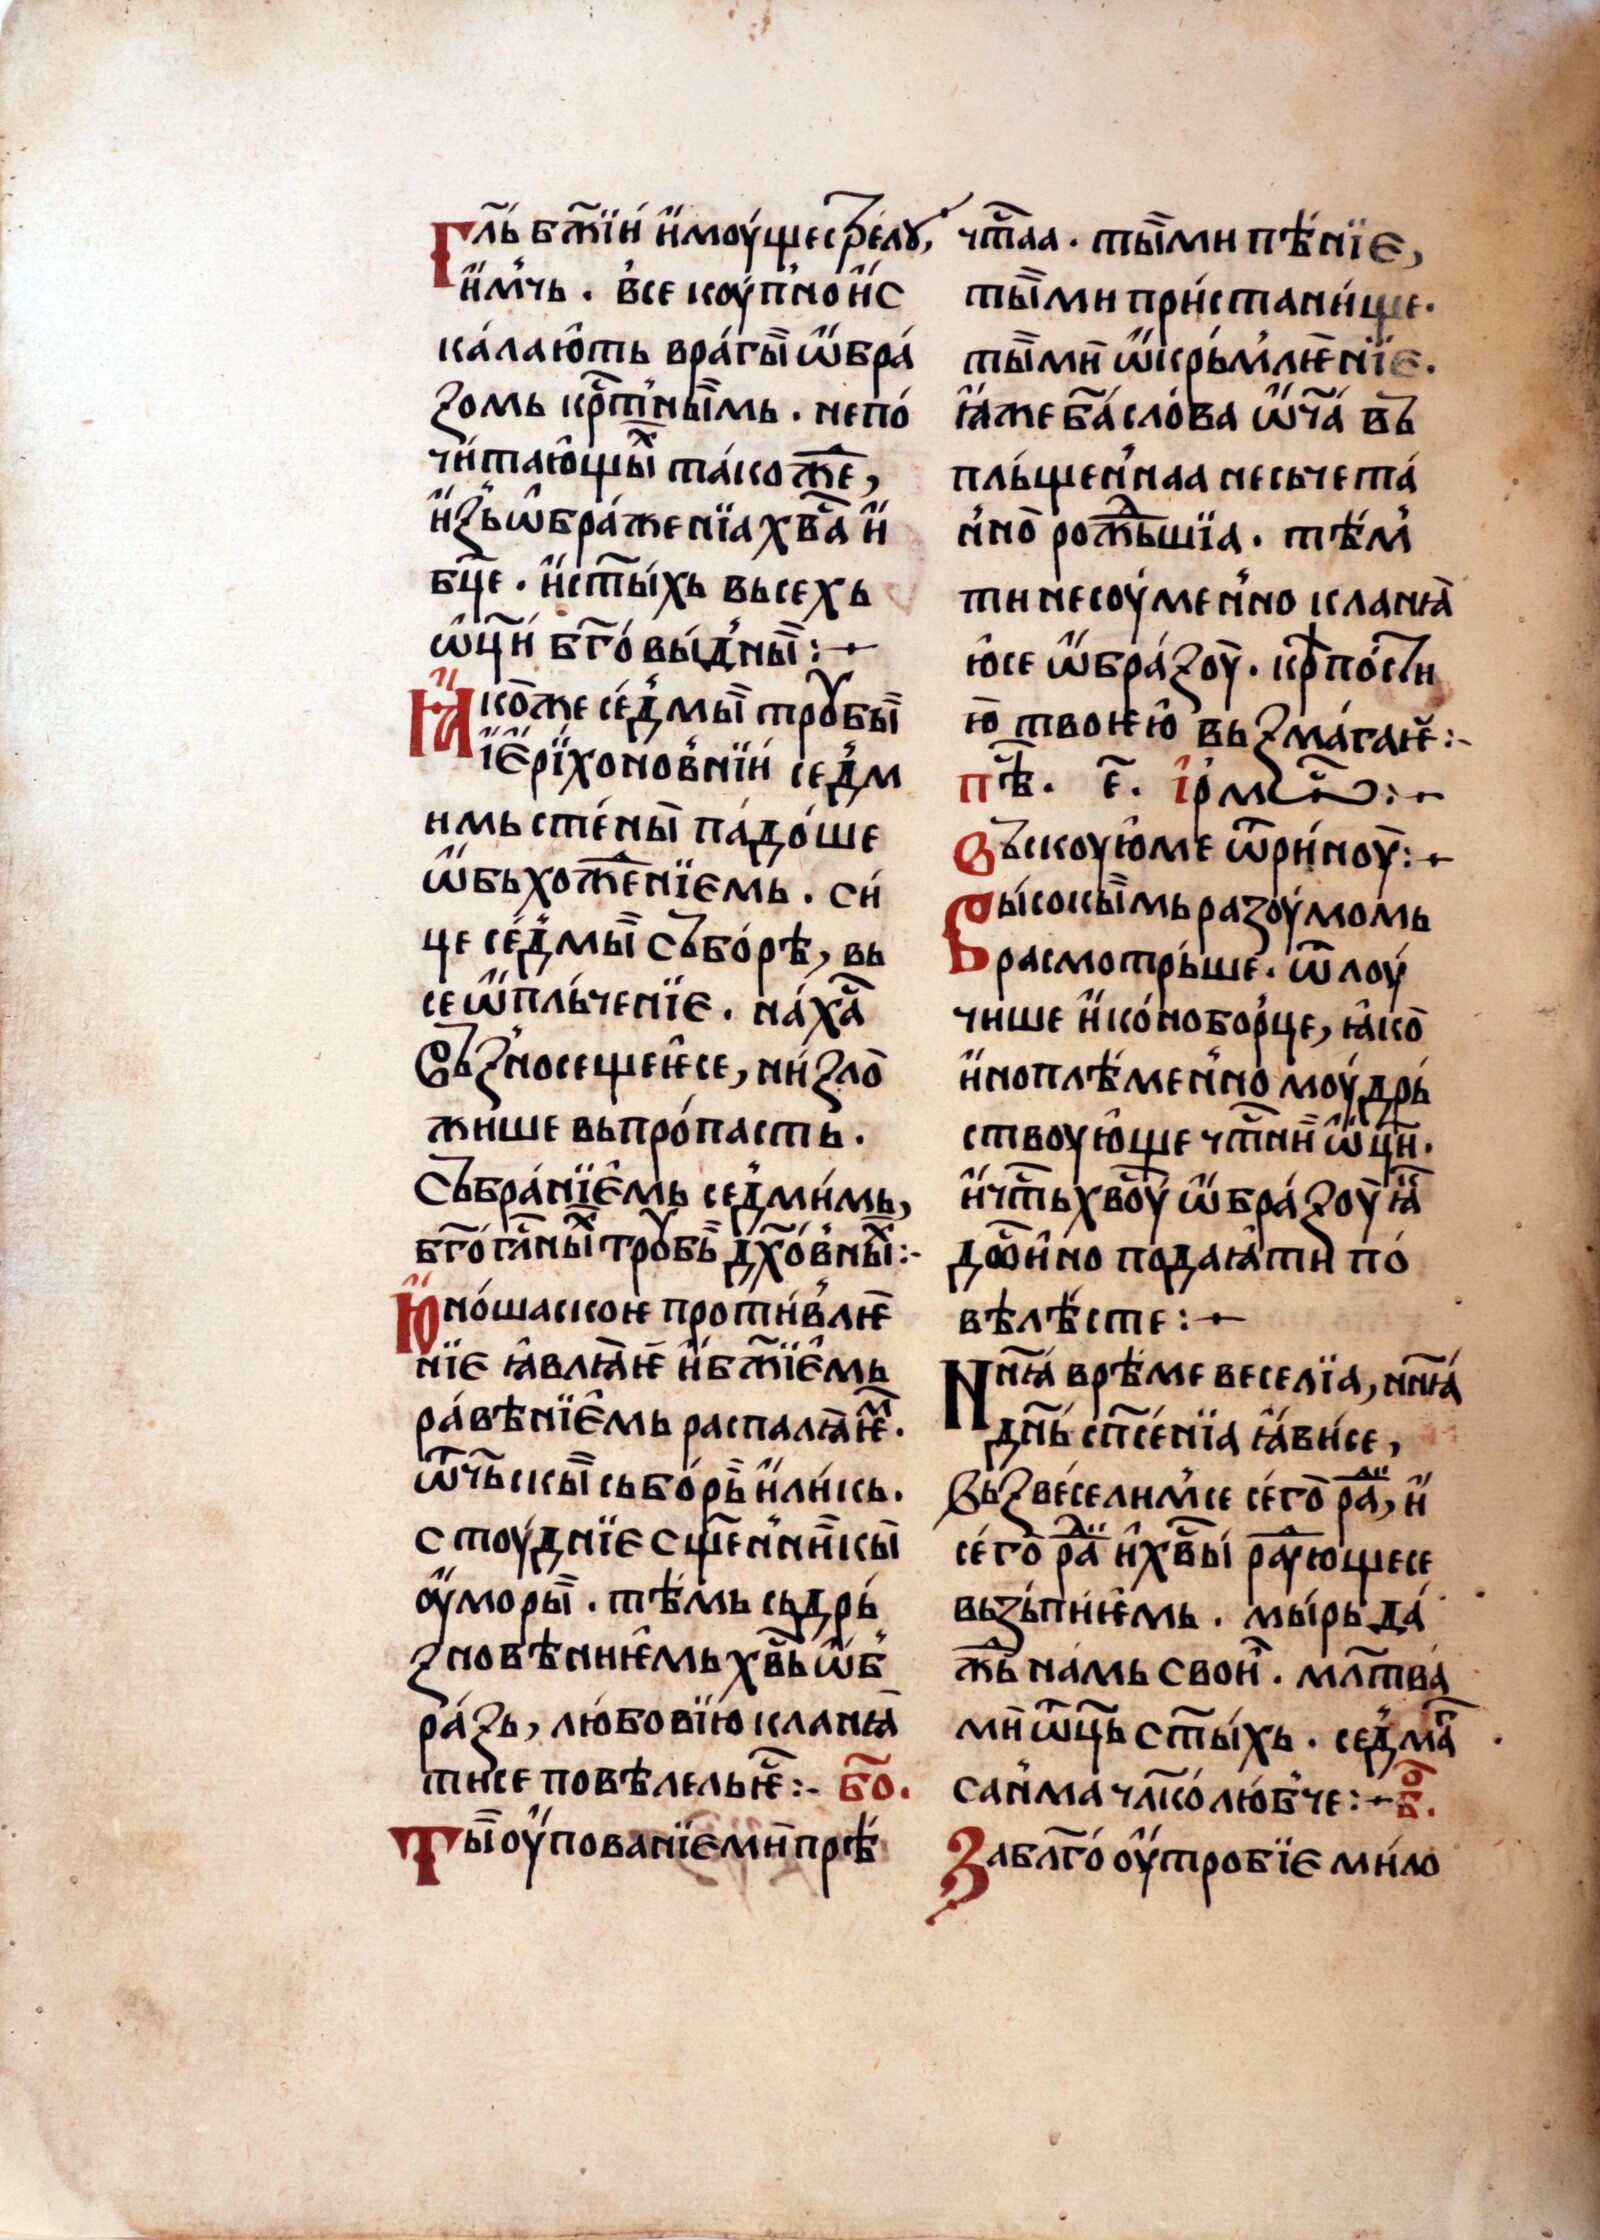 Гл҃ь бж҃їи и҆моу́ще стрѣлꙋ,
и҆мьчь . в҆се коу́пно и҆с
ка́лаю҆ть вра́гы ѡ҆бра́
зомь крⷭ҇т҆ныимь . непо
чи́таю҆щыⷯ та́кожⷣе,
и҆зьѡ҆бра́женїа хв҃а и҆
бц҃е . и҆ст҃ы́хь вьсехь
ѡ҆ц҃и бг҃овы́д҆ны :~
Ꙗ҆коже се́д҆мы трꙋбы
і҆е҆рїхонов҆нїи сед҆м
имь сте́ны падо́ше
ѡ҆бьхожⷣенїемь . си́
це се́д҆мы събо́рѣ, вь
се ѡ҆пль́ченїе . на́хⷭ҇а
въз҆носещеѥ҆се, ни́зло
жише вьпро́пасть .
Събра́нїе҆мь сед҆ми́мь,
бг҃огл҃аныⷯ трꙋбь дх҃ов҆ныⷯ :~
Ю҆но́шаскоѥ проти́в҆лѥ
нїе ꙗ҆влꙗѥ и҆бж҃їе҆мь
ра́вѣнїе҆мь распалꙗѥⷨ .
ѿ҆чьскы сьбо́рь и҆ли́кь .
стоу́днїе сщ҃ен҆никы
оу҆моры . тѣ́мь сьдрь́
зновѣннѥ҆мь хв҃ь ѡ҆б҆
ра́зь, любовїю кланꙗ
тисе повѣлельѥ :~ бⷪ҇о.
Ты оу҆пованїе ми прѣ
чт҃аа . ты́ми пѣ́нїе,
ты́ми при́стани́ще .
ты́ми ѡ҆крьм҆лѥнїе .
ꙗ҆же ба҃ сло́ва ѿ҆ча́ въ
пль́щен҆наа несьчета́
н҆но рожⷣьшїа . тѣ́м҆
ти несоу́мен҆но кланꙗ
ю҆се ѡ҆бра́зоу . крⷭ҇пости
ю твоѥю҆ вьзма́гаѥ :~
пѣⷭ҇. е҃. і҆рмⷭ҇ :~
Въскоую҆ме ѿри́ноу :~
Высокы́имь разоу́момь
расмотрь́ше . ѿлоу́
чише и҆ко́нобор҆це, ꙗ҆ко
и҆ноплѣ́мен҆но моу́дрь́
ствоую҆ще чт҃ни ѡ҆ц҃и .
и҆чⷭ҇ть хв҃оу ѡ҆бра́зоу ꙗ҆
дⷭ҇ои҆но подаꙗ҆ти по́
вѣлѣ́сте :~
Нн҃ꙗ врѣ́ме веселїа, нн҃ꙗ
дн҃ь спⷭ҇е́нїа ꙗ҆ви́се,
вьзве́селим҆се се́го раⷣи, и҆
се́го раⷣи и҆ хв҃ы́ раⷣꙋющесе
вьзьпи́ѥмь . мы́рь да́
жⷣь на́мь свои . млт҃ва́
ми ѿц҃ь ст҃ы́хь . сед҆мⷢ҇а
сан҆ма чл҃колю́б҆че :~ бⷪ҇.
Забл҃гооу҆тробїе ми́ло